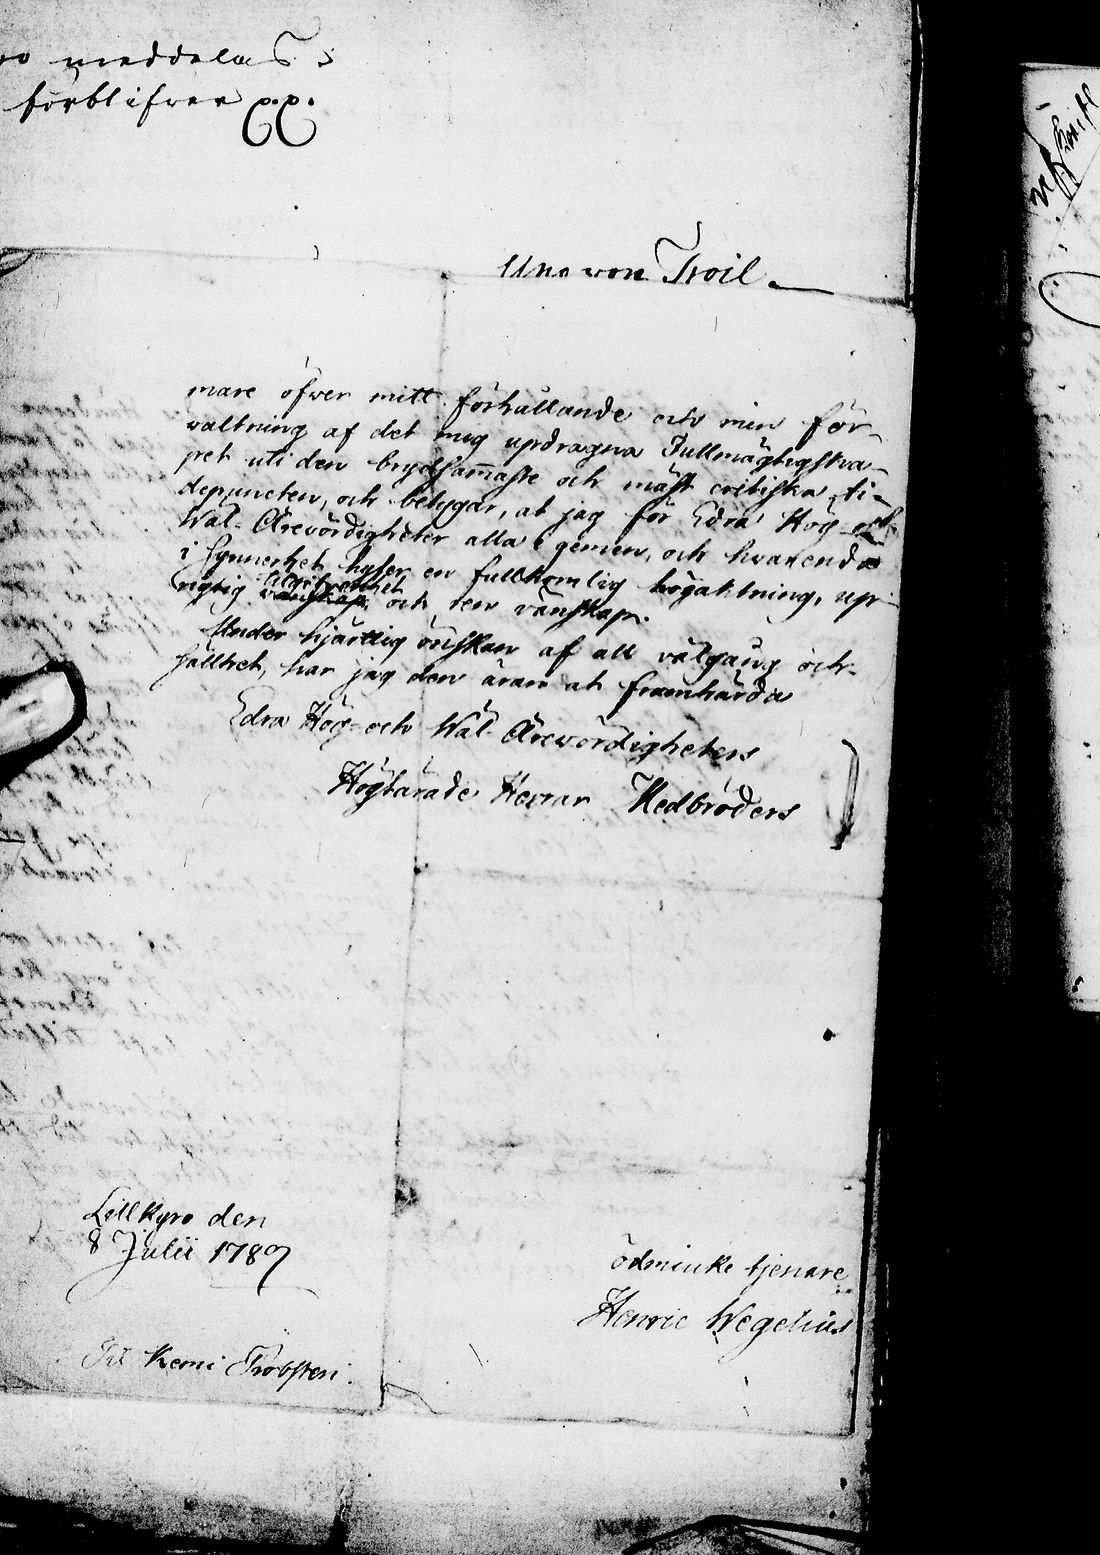 meddelas
förblifver pp.
Uno von Troil
mare öfwer mitt förhållande och min för-
waltning af det mig updragna Fullmägtigska-
pet uti den brydsammaste och mäst critiska ti-
depuncten, och betygar, at jag för Edra Hög- och
Wäl- Ärewördigheter alla i gemen, och hwarendra
i synnerhet hyser en fullkomlig högaktning, up-
rigtig wänskap och ren vänskap.
Under hjärtlig önskan af all välgång och
sällhet, har jag den äran at framhärda
Edra Hög- och Wäl- Ärewördigheters
Högtärade Herrar Medbröders
Lillkyro den
8 Julii 1789
ödmiuke tjenare
Henric Wegelius
Til Kemi Probsten.